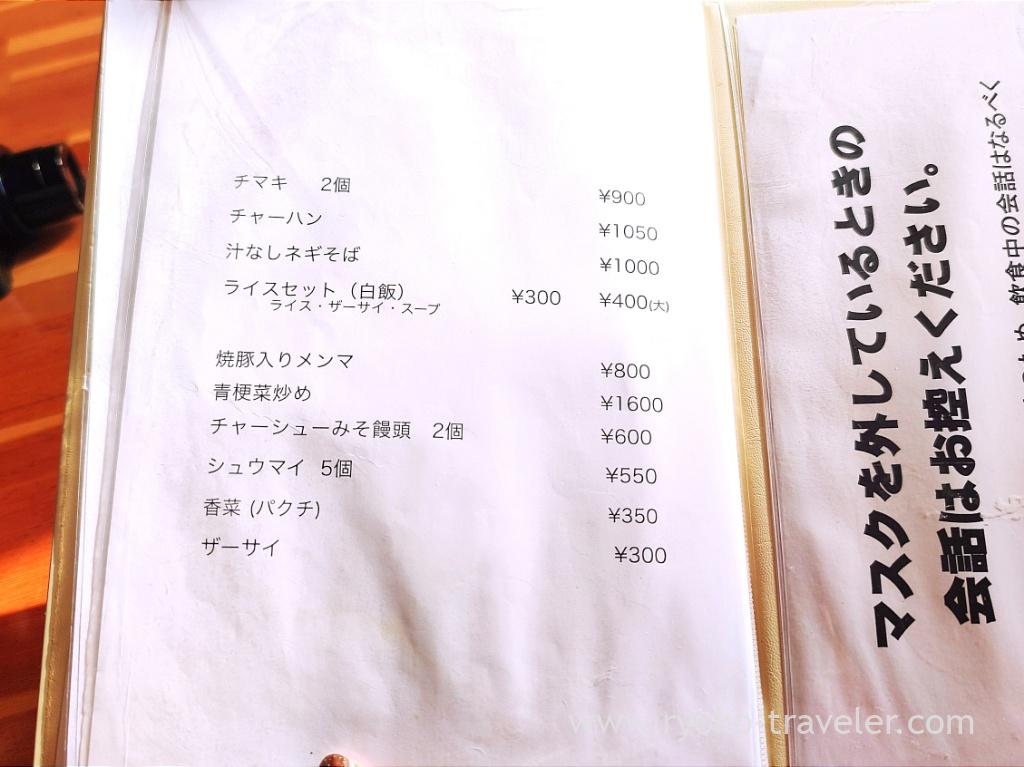 チマキ 2個 ¥900
チャーハン ¥1050
汁なしネギそば ¥1000
ライスセット（白飯） ¥300 ¥400(大)
ライス・ザーサイ・スープ
焼豚入りメンマ ¥800
青梗菜炒め ¥1600
チャーシューみそ饅頭 2個 ¥600
シュウマイ 5個 ¥550
香菜 (パクチ) ¥350
ザーサイ ¥300
マスクを外しているときの
会話はお控えください。
飲食中の会話はなるべく
www.ryokoutraveler.com